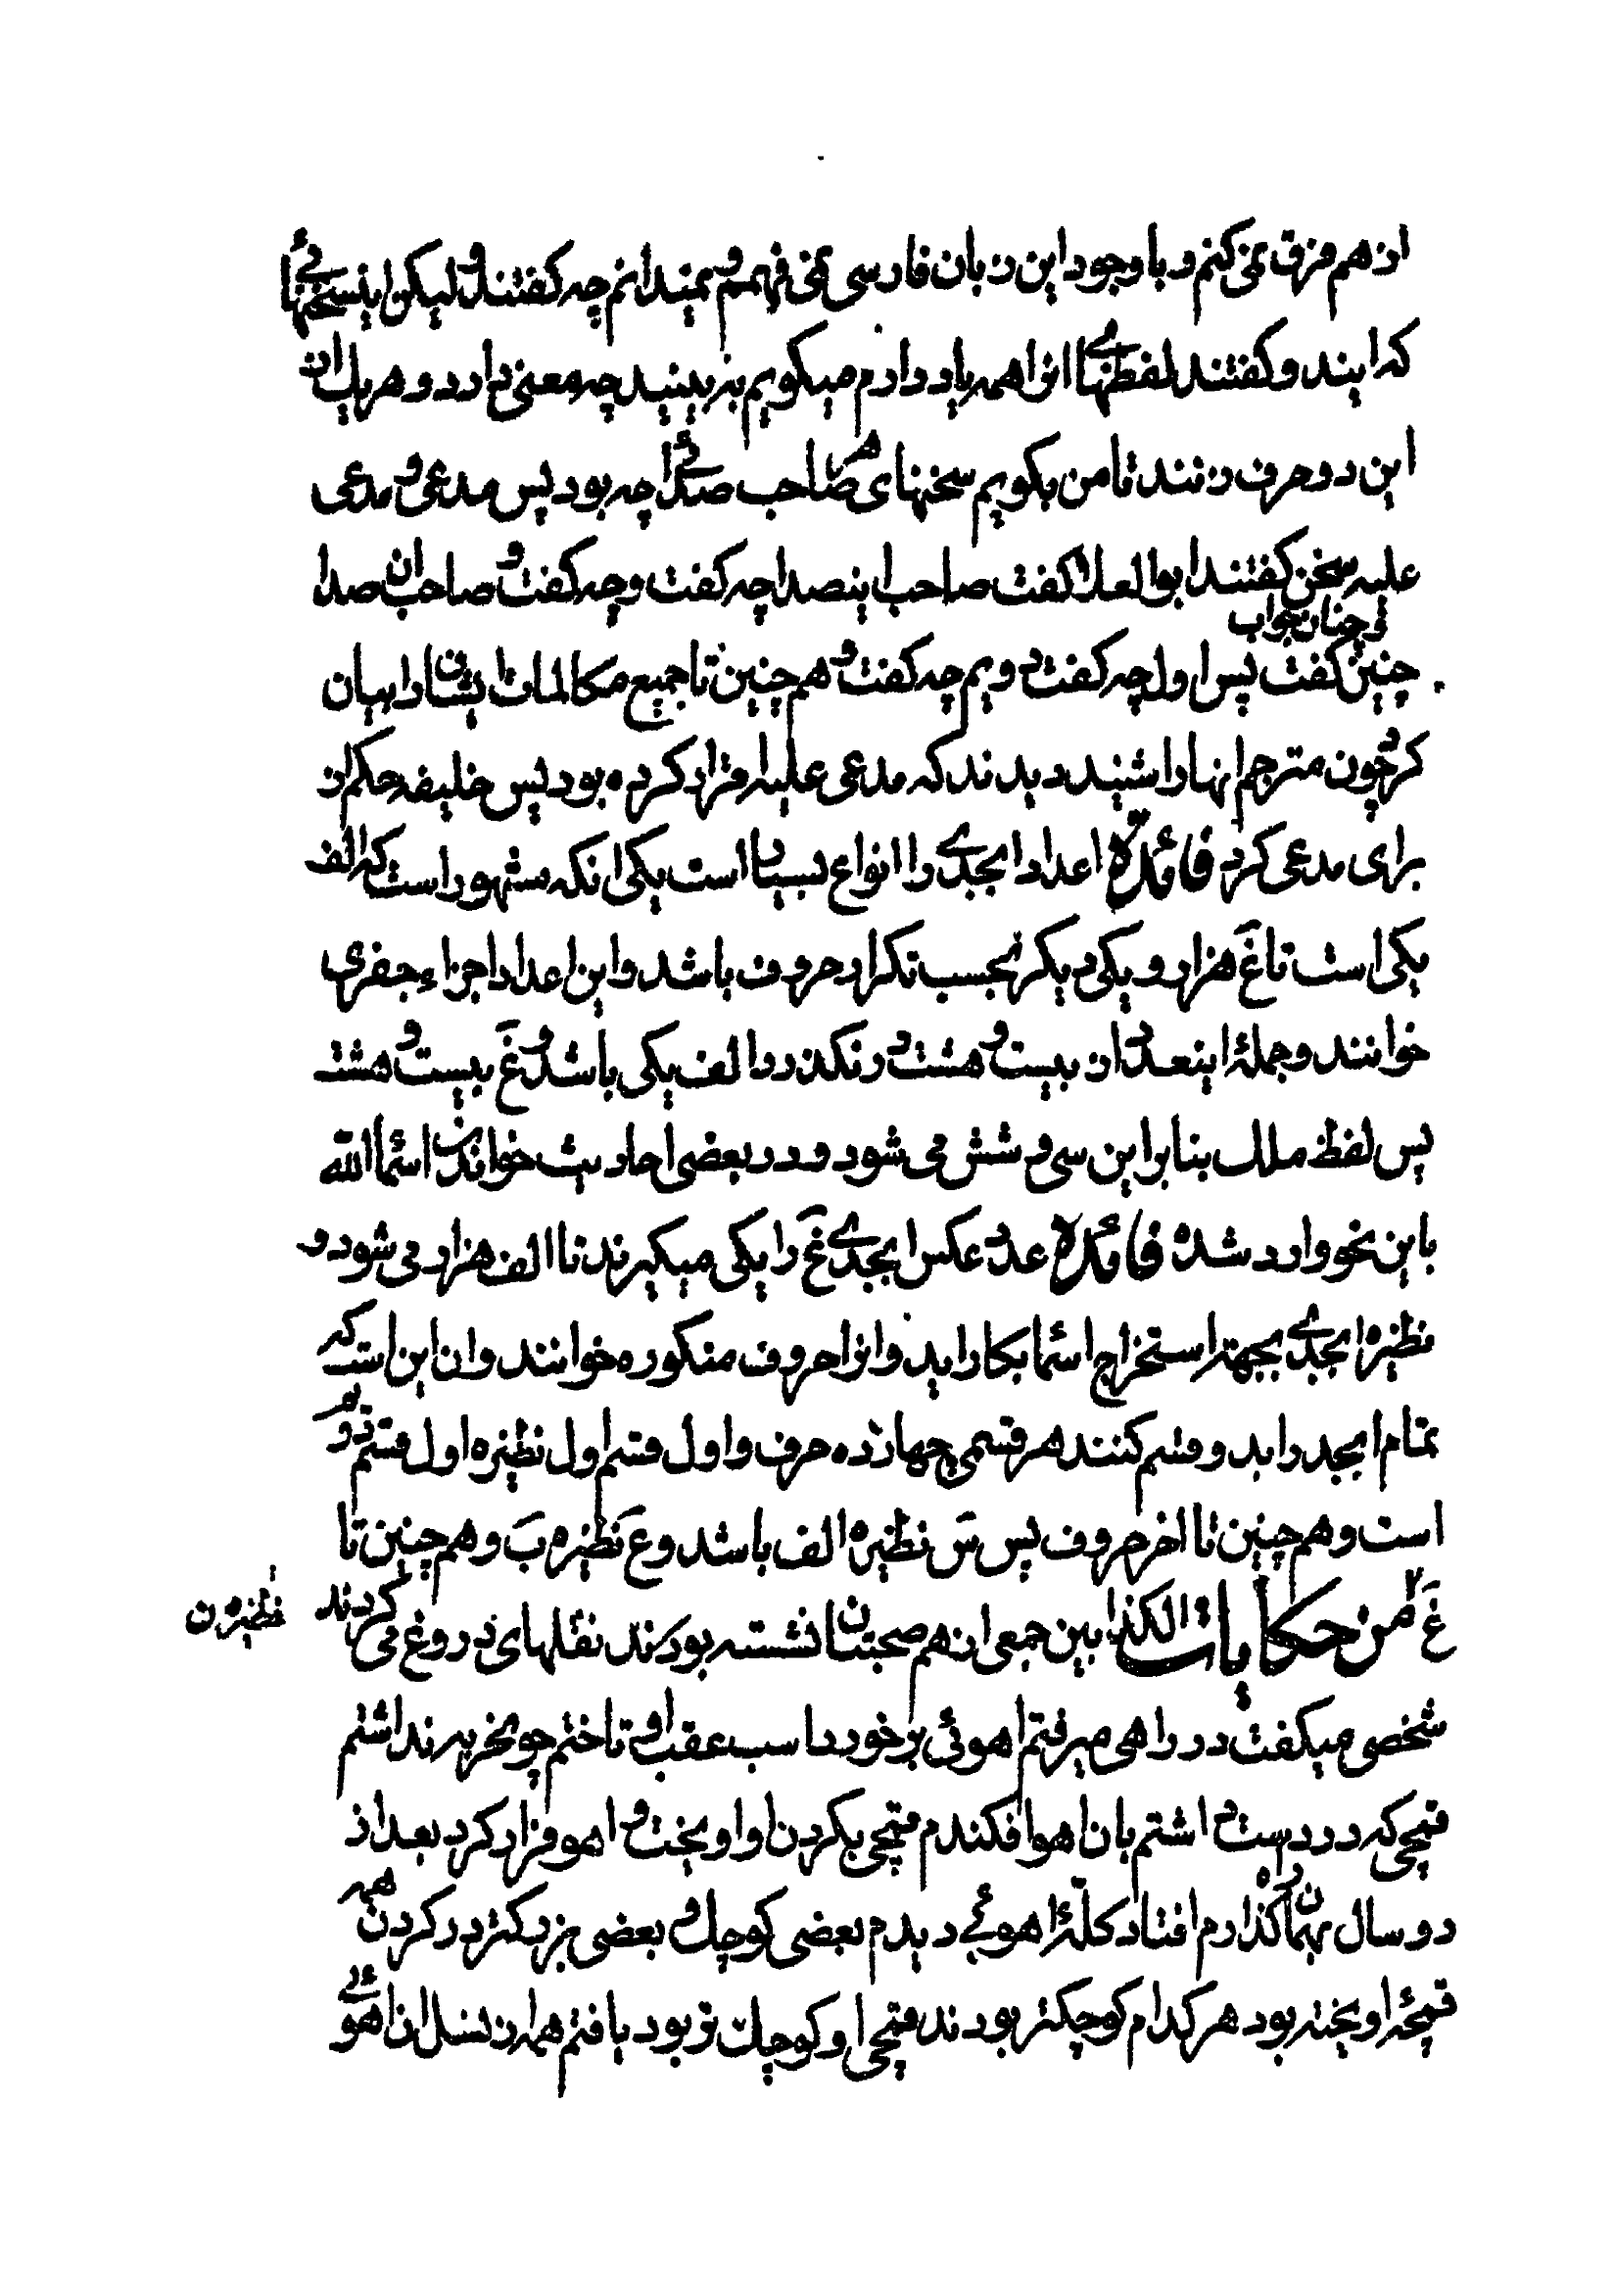 از هم فرق نمی کنم و با وجود این زبان فارسی نمی فهمم و نمیدانم چه کفتند و لیکن این سخنهائی
که ایند و کفتند لفظهای انرا همه یاد دارم میکویم به بینید چه معنی دارد و هر یک از
این دو حرف زنند تا من بکویم سخنهای هر صاحب صدائی چه بود پس مدعی و مدعی
علیه سخن کفتند ابوالعلا کفت صاحب اینصدا چه کفت و چه کفت و صاحب ان صدا
چنین کفت و چنان جواب پس اول چه کفت دویم چه کفت و هم چنین تا جمیع مکالمات ایشان را بیان
کرد چون مترجم انها را شنید دیدند که مدعی علیه اقرار کرده بود پس خلیفه حکم از
برای مدعی کرد فائده اعداد ابجدی را انواع بسیار است یکی انکه مشهور است که الف
یکی است تا غ هزار و یکی دیکر بحسب تکرار حروف باشد و این اعداد اجزاء جفری
خوانند و جملهٔ اینعدد از بیست و هشت در نکذرد و الف یکی باشد و غ بیست و هشت
پس لفظ ملک بنابر این سی و شش می شود و در بعضی احادیث خواندن اسماء الله
باین نحو وارد شده فائده عدد عکس ابجدی غ را یکی میکیرند تا الف هزار می شود و
نظیره ابجدی بجهة استخراج اسما بکار اید و انرا حروف منکوره خوانند و ان این است که
تمام ابجد را بدو قسم کنند هر قسمی چهارده حرف و اول قسم اول نظیره اول قسم دویم
است و هم چنین تا اخر حروف پس س نظیره الف باشد و ع نظیره ب و هم چنین تا
غ نظیره ن من حکایات الکذابین جمعی از هم صحبتان نشسته بودند نقلهای دروغ می کردند
شخصی میکفت در راهی میرفتم اهوئی برخورد اسب عقب او تاختم چون حربه نداشتم
قمچی که در دست داشتم بان اهو افکندم قمچی بکردن او اویخت و اهو فرار کرد بعد از
دو سال بهمان راه کذارم افتاد کلّهٔ اهوئی دیدم بعضی کوچک و بعضی بزرکتر در کردن همه
قمچهٔ اویخته بود هر کدام کوچکتر بودند قمچی او کوچک تر بود یافتم همه از نسل ان اهوئی